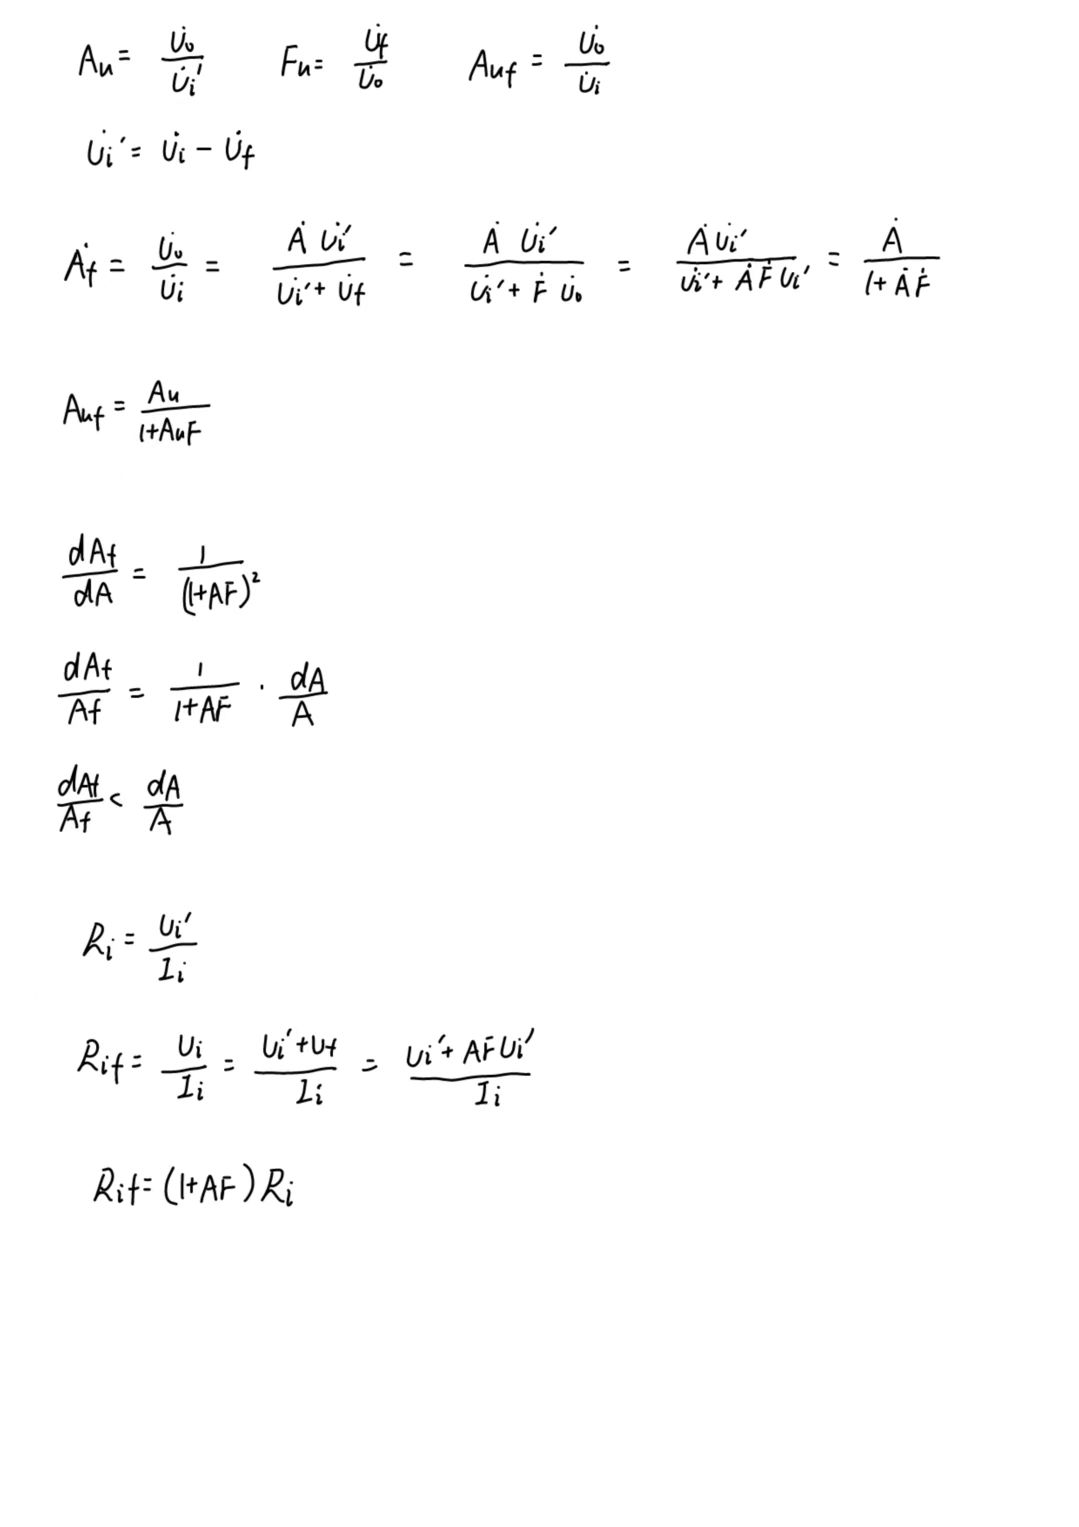 Au = U̇o/U̇i′ Fu = U̇f/U̇o Auf = U̇o/U̇i
U̇i′ = U̇i − U̇f
Ȧf = U̇o/U̇i = Ȧ U̇i′/(U̇i′ + U̇f) = Ȧ U̇i′/(U̇i′ + Ḟ U̇o) = Ȧ U̇i′/(U̇i′ + Ȧ Ḟ Ui′) = Ȧ/(1 + Ȧ Ḟ)
Auf = Au/(1+AuF)
dAf/dA = 1/(1+AF)²
dAf/Af = 1/(1+AF) · dA/A
dAf/Af < dA/A
Ri = Ui′/Ii
Rif = Ui/Ii = (Ui′+Uf)/Ii = (Ui′+ AFUi′)/Ii
Rif = (1+AF)Ri